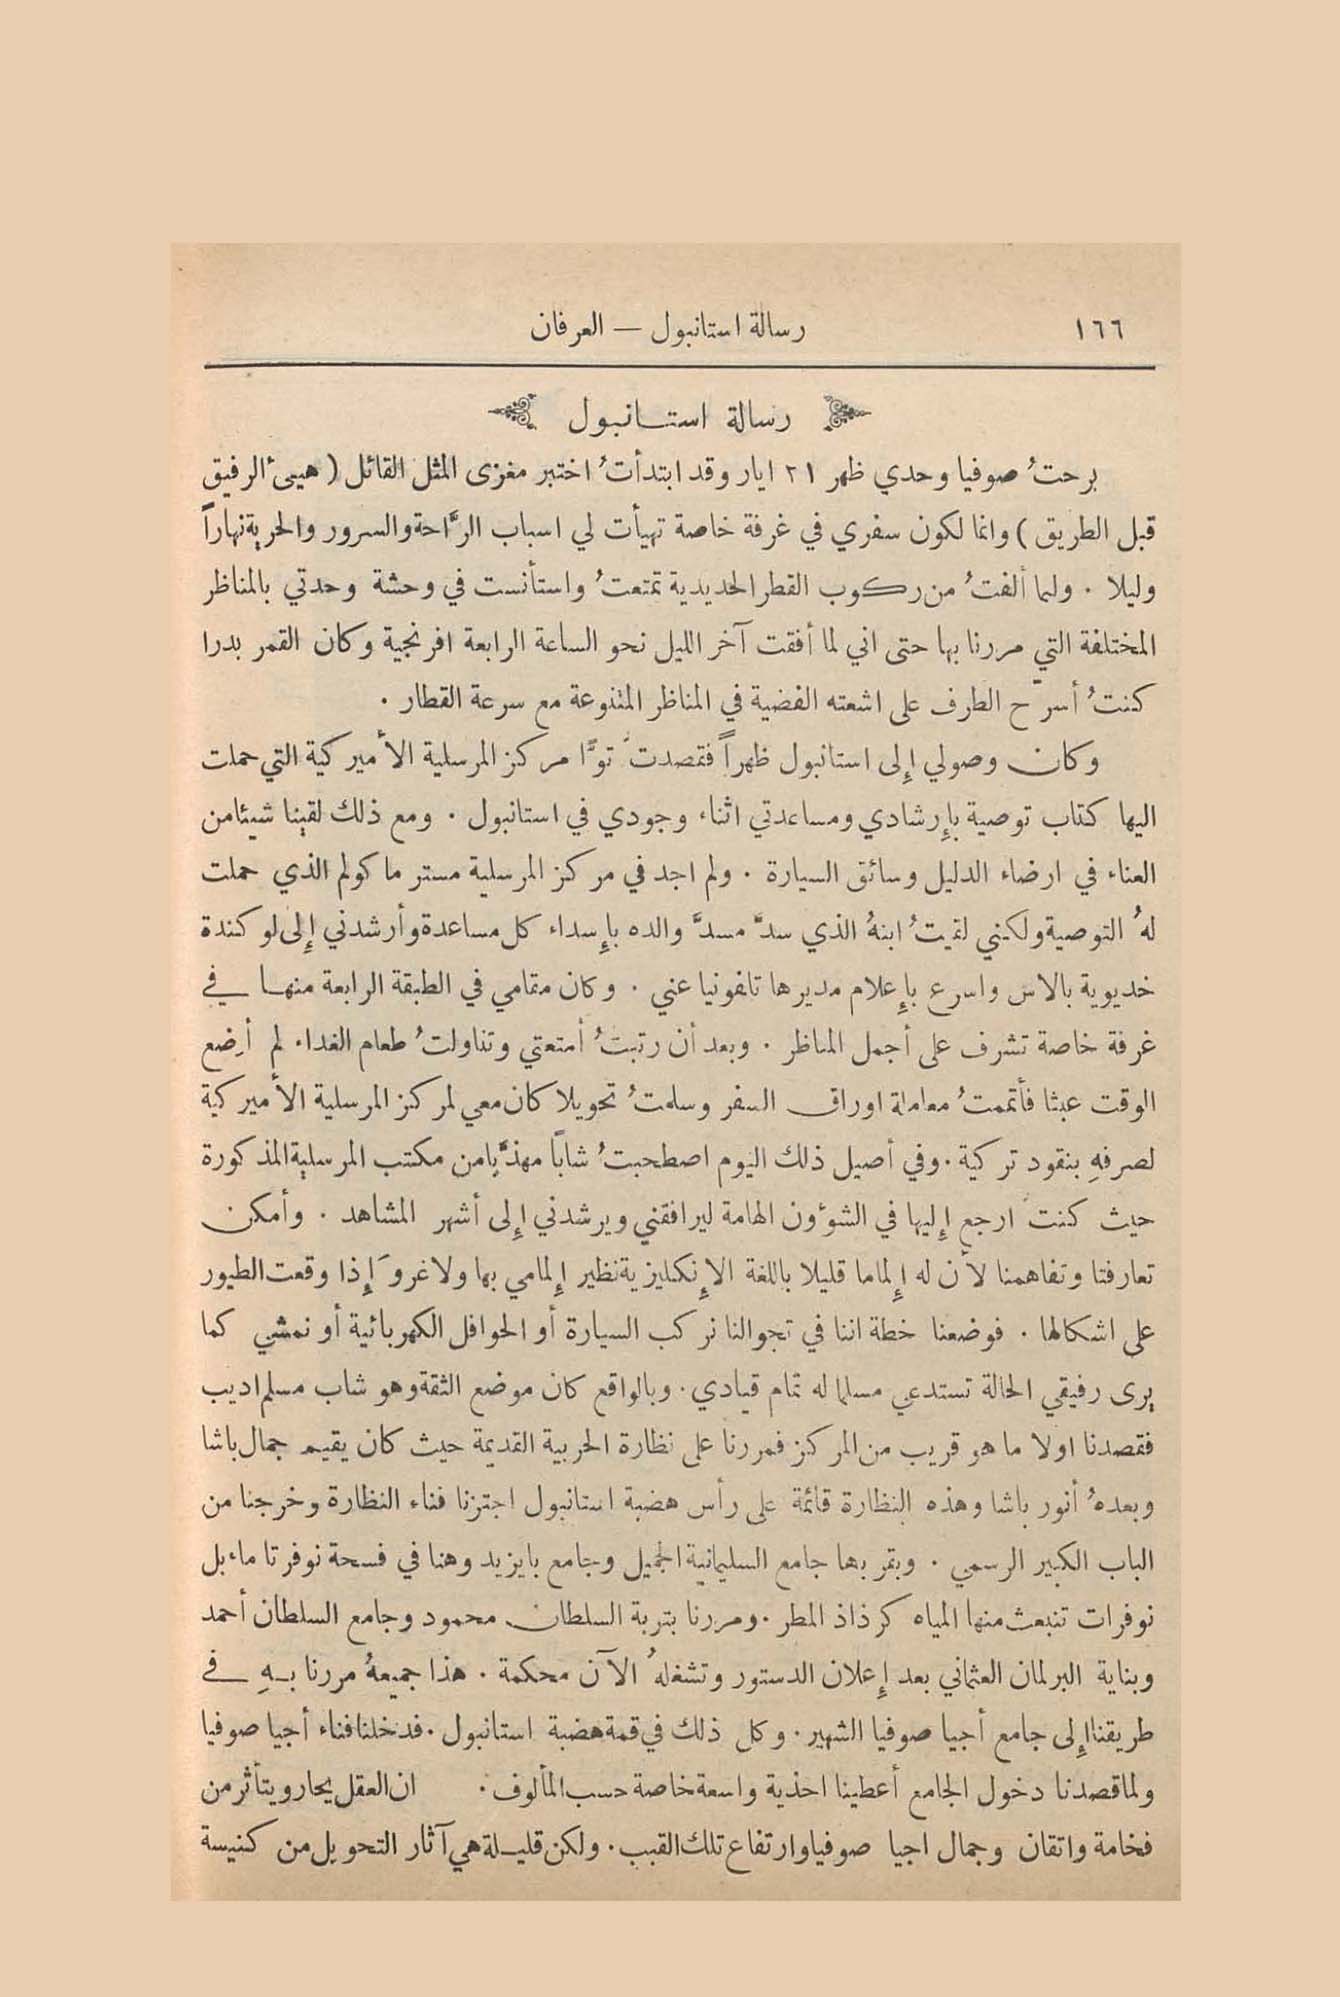 ١٦٦
رسالة استانبول — العرفان
رسالة استانبول
برحتُ صوفيا وحدي ظهر ٢١ ايار وقد ابتدأتُ اختبر مغزى المثل القائل ( هيئ الرفيق
قبل الطريق ) وانما لكون سفري في غرفة خاصة تهيأت لي اسباب الرَّاحة والسرور والحرية نهاراً
وليلا . ولما ألفتُ من ركوب القطر الحديدية تمتعتُ واستأنست في وحشة وحدتي بالمناظر
المختلفة التي مررنا بها حتى اني لما أفقت آخر الليل نحو الساعة الرابعة افرنجية وكان القمر بدرا
كنتُ أسرّح الطرف على اشعته الفضية في المناظر المتنوعة مع سرعة القطار .
وكان وصولي إلى استانبول ظهراً فقصدتُ توًّا مركز المرسلية الأميركية التي حملت
اليها كتاب توصية بإرشادي ومساعدتي اثناء وجودي في استانبول . ومع ذلك لقينا شيئا من
العناء في ارضاء الدليل وسائق السيارة . ولم اجد في مركز المرسلية مستر ماكولم الذي حملت
لهُ التوصية ولكنني لقيتُ ابنهُ الذي سدَّ مسدَّ والده بإسداء كل مساعدة وأرشدني إلى لوكندة
خديوية بالاس واسرع بإعلام مديرها تلفونيا عني . وكان مقامي في الطبقة الرابعة منها في
غرفة خاصة تشرف على أجمل المناظر . وبعد أن رتبتُ أمتعتي وتناولتُ طعام الغداء لم أضع
الوقت عبثا فأتممتُ معاملة اوراق السفر وسلمتُ تحويلا كان معي لمركز المرسلية الأميركية
لصرفهِ بنقود تركية . وفي أصيل ذلك اليوم اصطحبتُ شابًا مهذَّبا من مكتب المرسلية المذكورة
حيث كنتُ ارجع إليها في الشؤون الهامة ليرافقني ويرشدني إلى أشهر المشاهد . وأمكن
تعارفنا وتفاهمنا لأن له إلماما قليلا باللغة الإنكليزية نظير إلمامي بها ولا غروَ إذا وقعت الطيور
على اشكالها . فوضعنا خطة اننا في تجوالنا نركب السيارة أو الحوافل الكهربائية أو نمشي كما
يرى رفيقي الحالة تستدعي مسلما له تمام قيادي . وبالواقع كان موضع الثقة وهو شاب مسلم اديب
فقصدنا اولا ما هو قريب من المركز فمررنا على نظارة الحربية القديمة حيث كان يقيم جمال باشا
وبعدهُ أنور باشا وهذه النظارة قائمة على رأس هضبة استانبول اجتزنا فناء النظارة وخرجنا من
الباب الكبير الرسمي . وبقربها جامع السليمانية الجميل وجامع بايزيد وهنا في فسحة نوفرتا ماء بل
نوفرات تنبعث منها المياه كرذاذ المطر . ومررنا بتربة السلطان محمود وجامع السلطان أحمد
وبناية البرلمان العثماني بعد إعلان الدستور وتشغلهُ الآن محكمة . هذا جميعهُ مررنا بهِ في
طريقنا إلى جامع أجيا صوفيا الشهير . وكل ذلك في قمة هضبة استانبول . فدخلنا فناء أجيا صوفيا
ولما قصدنا دخول الجامع أعطينا احذية واسعة خاصة حسب المألوف . ان العقل يحار ويتأثر من
فخامة واتقان وجمال اجيا صوفيا وارتفاع تلك القبب . ولكن قليلة هي آثار التحويل من كنيسة